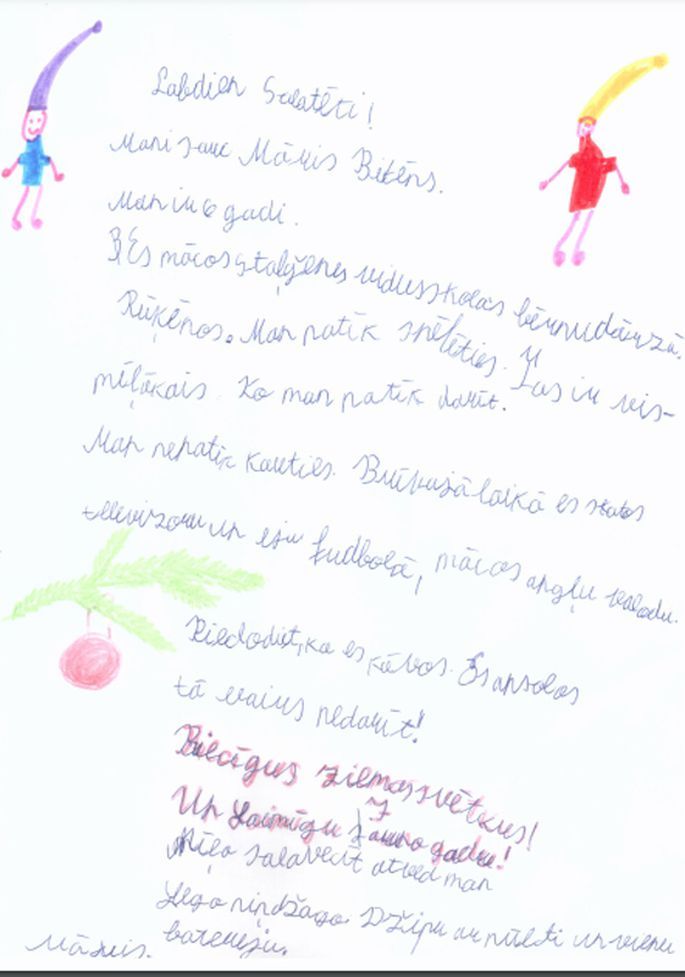 Labdien Salatēti!
Mani sauc Māris Bikēns.
Man ir 6 gadi.
Es mācos staļģenes vidusskolas bērnudārzā.
Rūķēnos. Man patīk spēlēties. Tas ir vis-
mīļākais. Ko man patīk darīt.
Man nepatīk kauties. Brīvajā laikā es skatos
televizoru un eju fudbolā, mācos angļu valodu.
Piedodiet, ka es kāvos. Es apsolos
tā vairs nedarīt!
Priecīgus ziemassvētkus!
Un Laimīgu Jauno gadu!
Mīļo salavecīt atved man
Lego niņdžago. Džipu ar pulti un vienu
bateriju.
Māris.